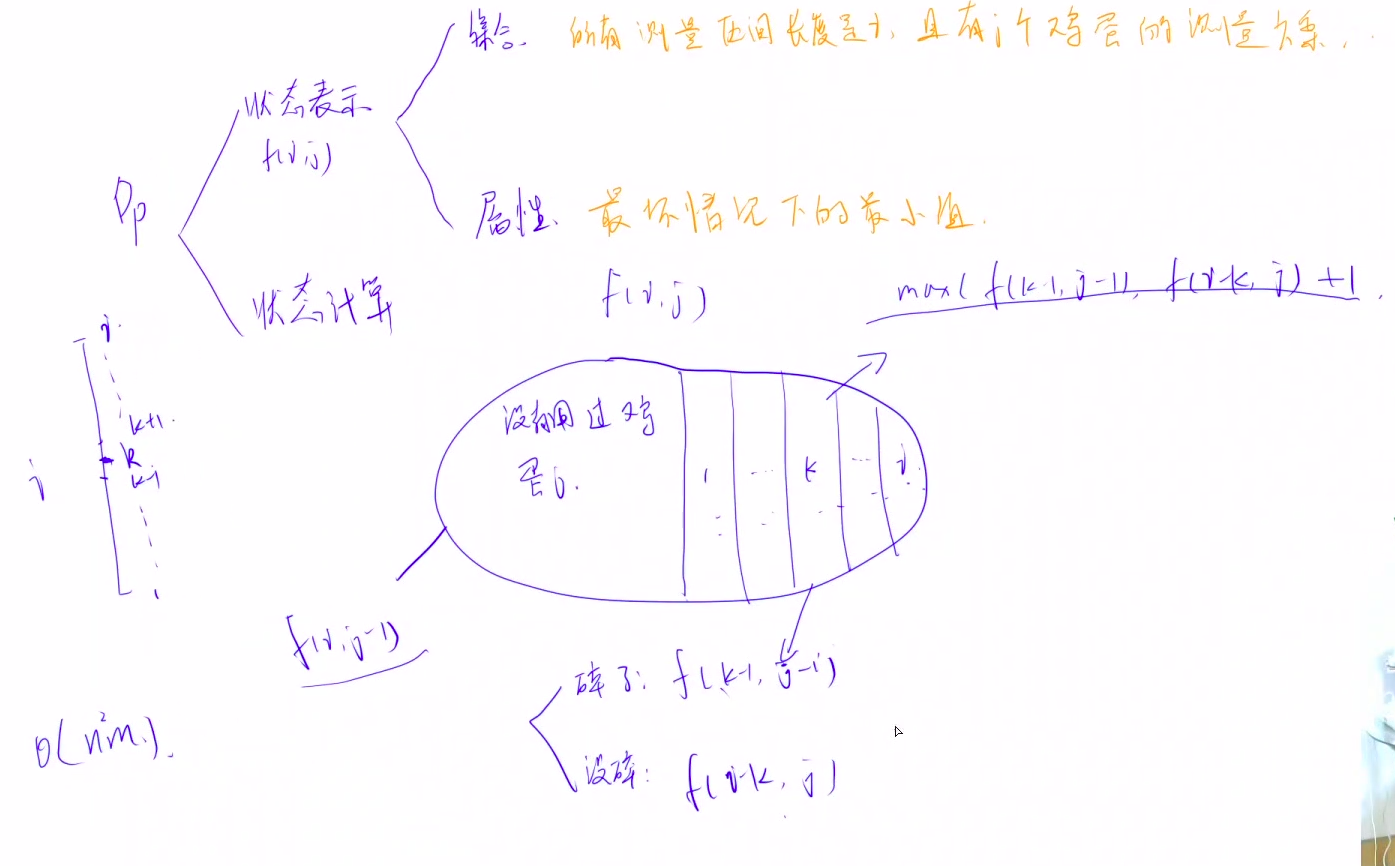 集合. 所有测量区间长度是i, 且有j个鸡蛋的测量方案.
状态表示
f(i,j)
DP
属性. 最坏情况下的最小值.
状态计算
f(i,j)
max( f(k-1, j-1), f(i-k, j) ) +1
i
k+1
k
k-1
1
i
没有用过鸡
蛋j.
1 ... k ... i
f(i,j-1)
碎了: f(k-1, j-1)
没碎: f(i-k, j)
O(n²m).